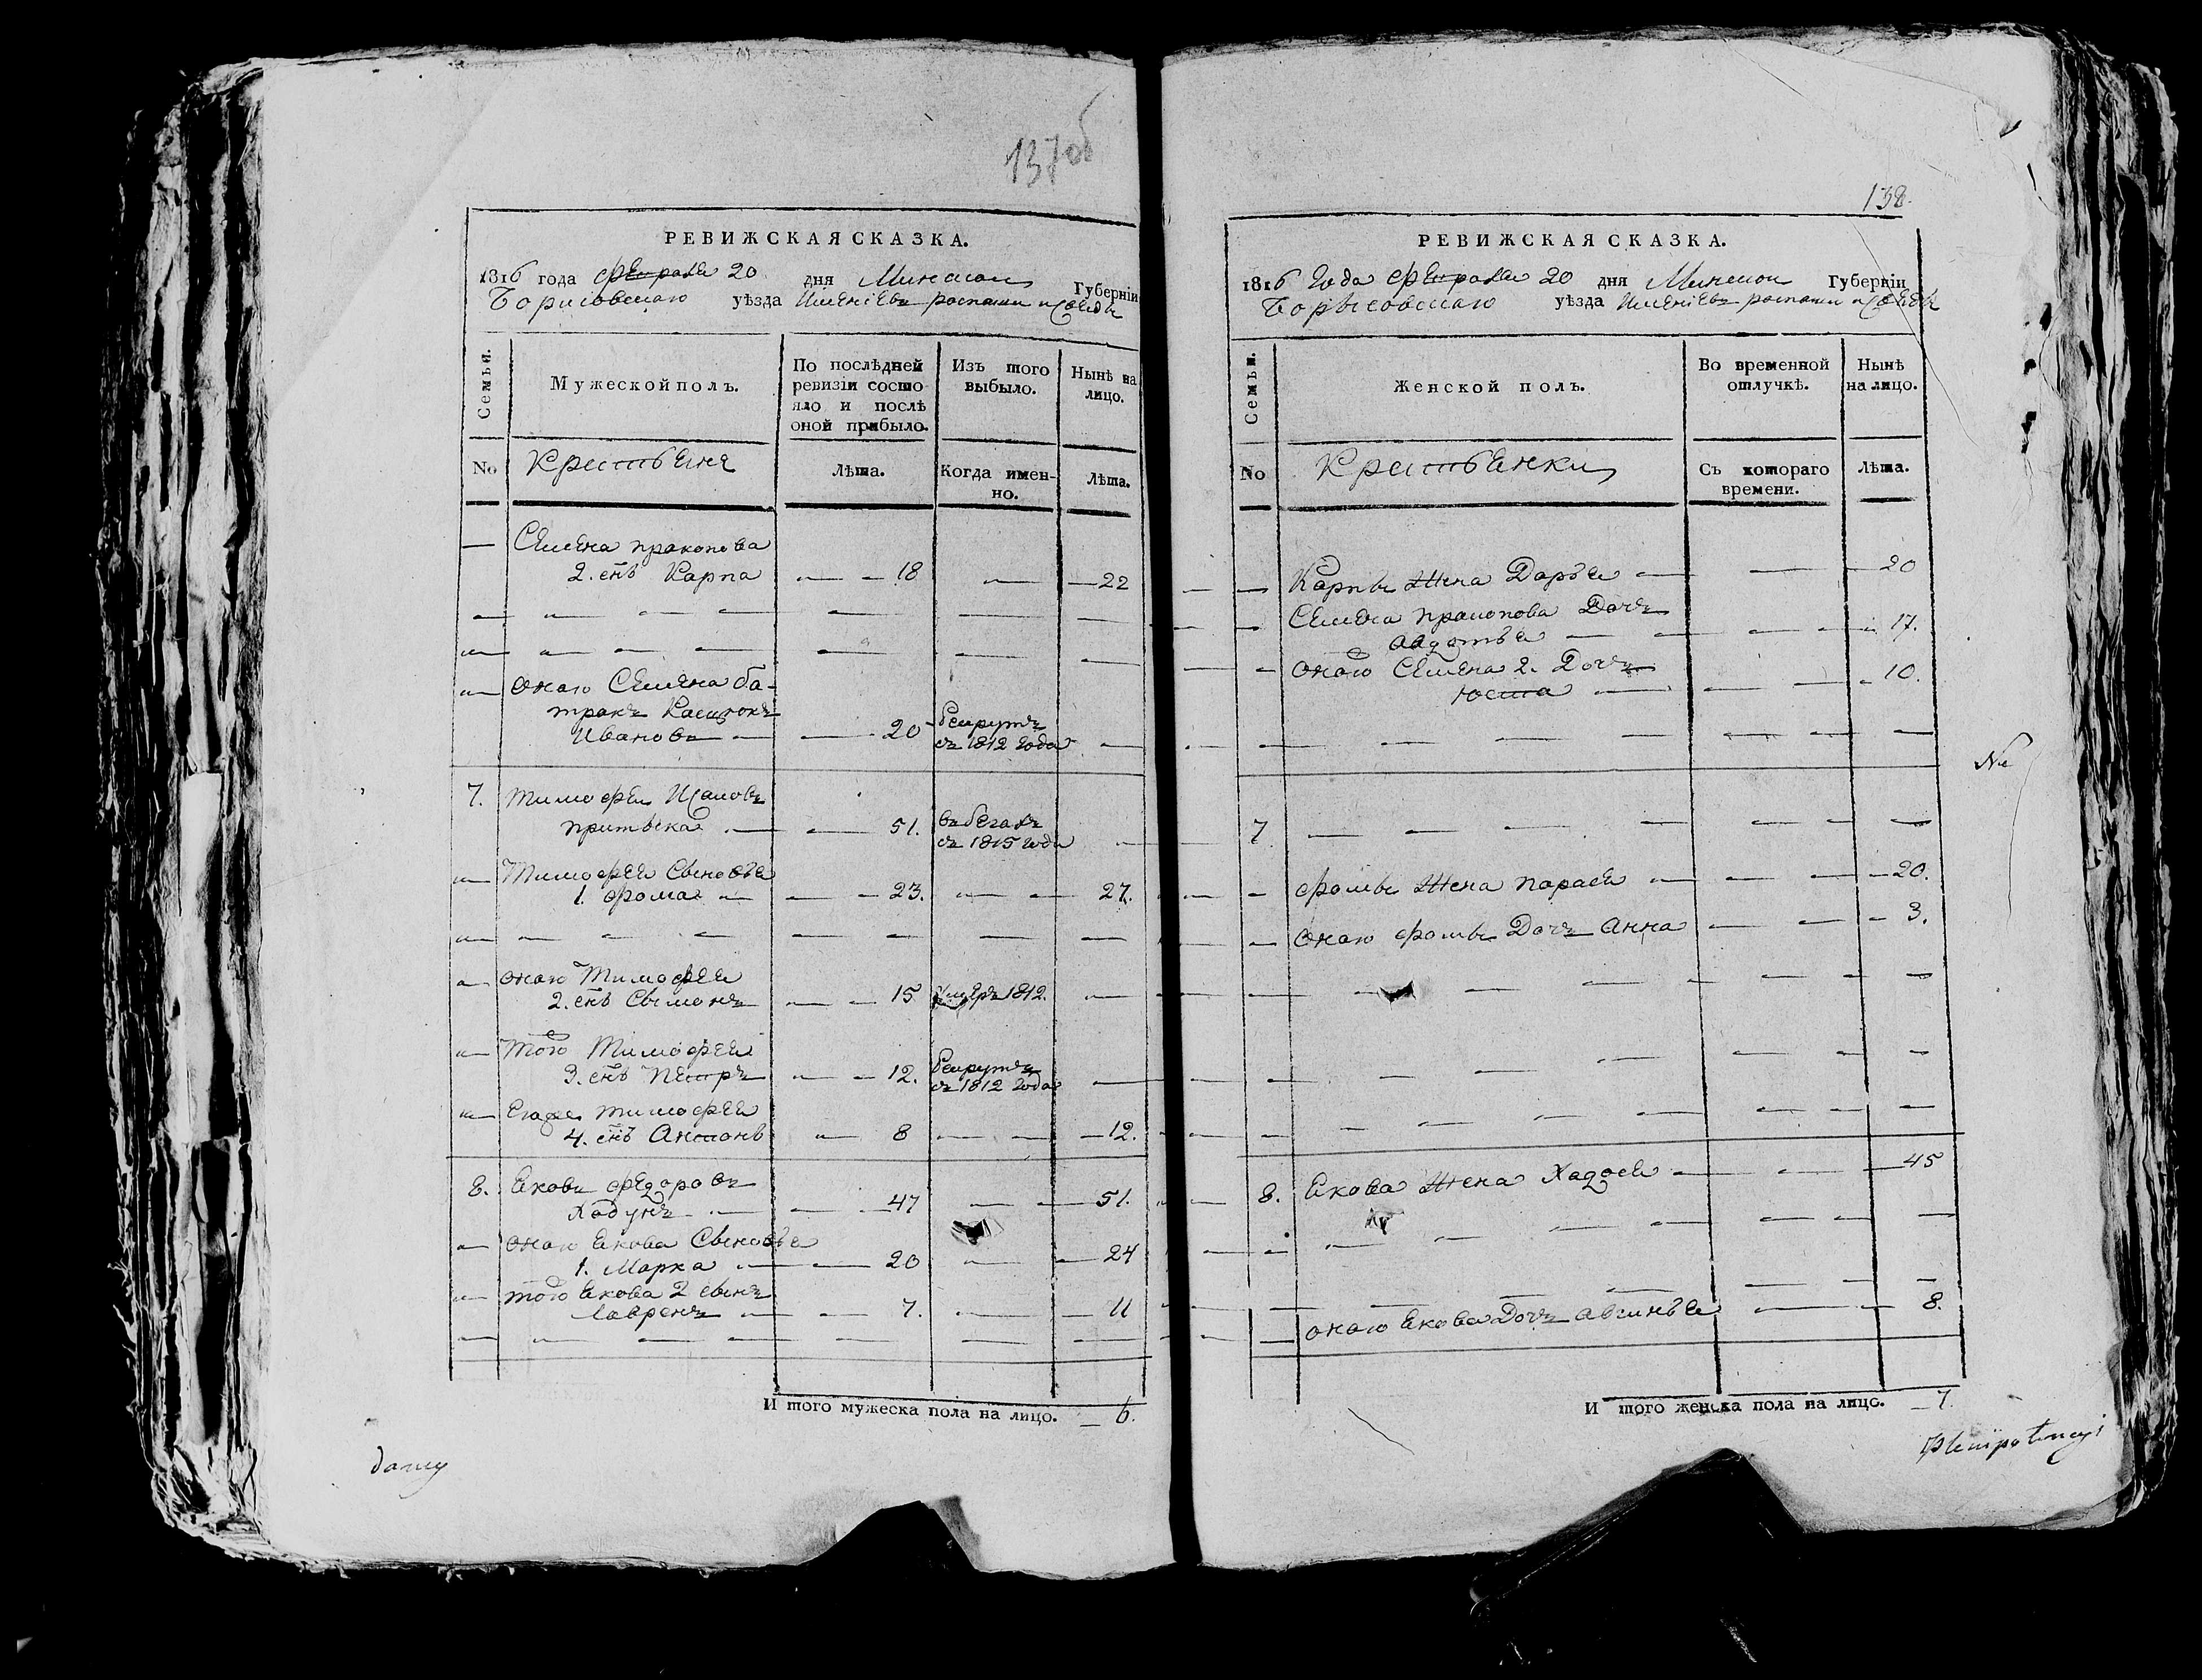 137об
РЕВИЖСКАЯ СКАЗКА.
1816 года февраля 20 дня Минской Губерніи
Борисовскаго уѣзда
Семьи.
Мужеской полъ.
По послѣдней ревизіи состояло и послѣ оной прибыло.
Изъ того выбыло.
Нынѣ на лицо.
No
Крестьяне
Лѣта.
Когда именно.
Лѣта.
— Семена пракопова
2. снъ Карпа — — 18 — — 22
— — — — — — —
— — — — — — —
— онаго Семена ба-
тракъ Касцюкъ
Ивановъ — — 20 рекрутъ
съ 1812 года —
7. тимофеи
притыка — — 51. въ бегахъ
съ 1815 года —
— Тимофея Сыновья
1. фома — — — 23. — — 27.
— — — — — — — — —
— онаго Тимофея
2. снъ Сымонъ — — 15 умеръ 1812. —
— того Тимофея
3. снъ Петръ — — 12. рекрутъ
съ 1812 года —
— тимофея
4. снъ Антонъ — 8 — — — 12.
8. Яковъ федоровъ
Хадунъ — — — 47 — — 51.
— онаго Якова Сыновья
1. Марка — — 20 — — 24
— того Якова 2 сынъ
Лавренъ — — 7. — — 11
— — — — — — — —
И того мужеска пола на лицо. — 6.
dany
138.
РЕВИЖСКАЯ СКАЗКА.
1816 Года февраля 20 дня Минской Губерніи
Борысовскаго уѣзда
Семьи.
Женской полъ.
Во временной отлучкѣ.
Нынѣ на лицо.
No
Крестьянки
Съ котораго времени.
Лѣта.
— Карпы Жена Дарья — — — 20
— Семена пракопова Дочъ
авдотья — — — — — 17.
— онаго Семена 2. Дочъ
Юста — — — — 10.
— — — — — — — —
7 — — — — — — —
— фомы Жена парася — — — — 20.
— онаго фомы Дочъ Анна — — — 3.
— — — — — — —
— — — — — —
— — — — — — —
8. Якова Жена Хадося — — — 45
— — — — — — — —
— — — — — —
— онаго Якова Дочъ авгинья — — 8.
И того женска пола на лицо. — 7.
Plenipotencyi